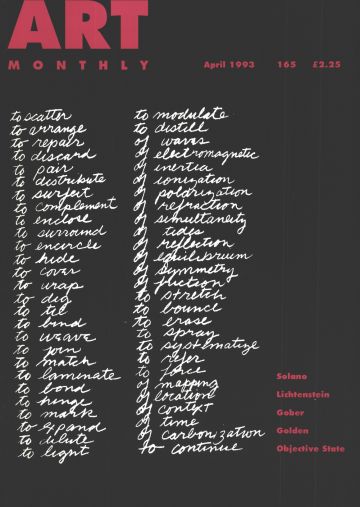 ART
MONTHLY
April 1993 165 £2.25
to scatter
to arrange
to repair
to discard
to pair
to distribute
to surfeit
to complement
to enclose
to surround
to encircle
to hide
to cover
to wrap
to dig
to tie
to bind
to weave
to join
to match
to laminate
to bond
to hinge
to mark
to expand
to dilute
to light
to modulate
to distill
of waves
of electromagnetic
of inertia
of ionization
of polarization
of refraction
of simultaneity
of tides
of reflection
of equilibrium
of symmetry
of friction
to stretch
to bounce
to erase
to spray
to systematize
to refer
to force
of mapping
of location
of context
of time
of carbonization
to continue
Solano
Lichtenstein
Gober
Golden
Objective State